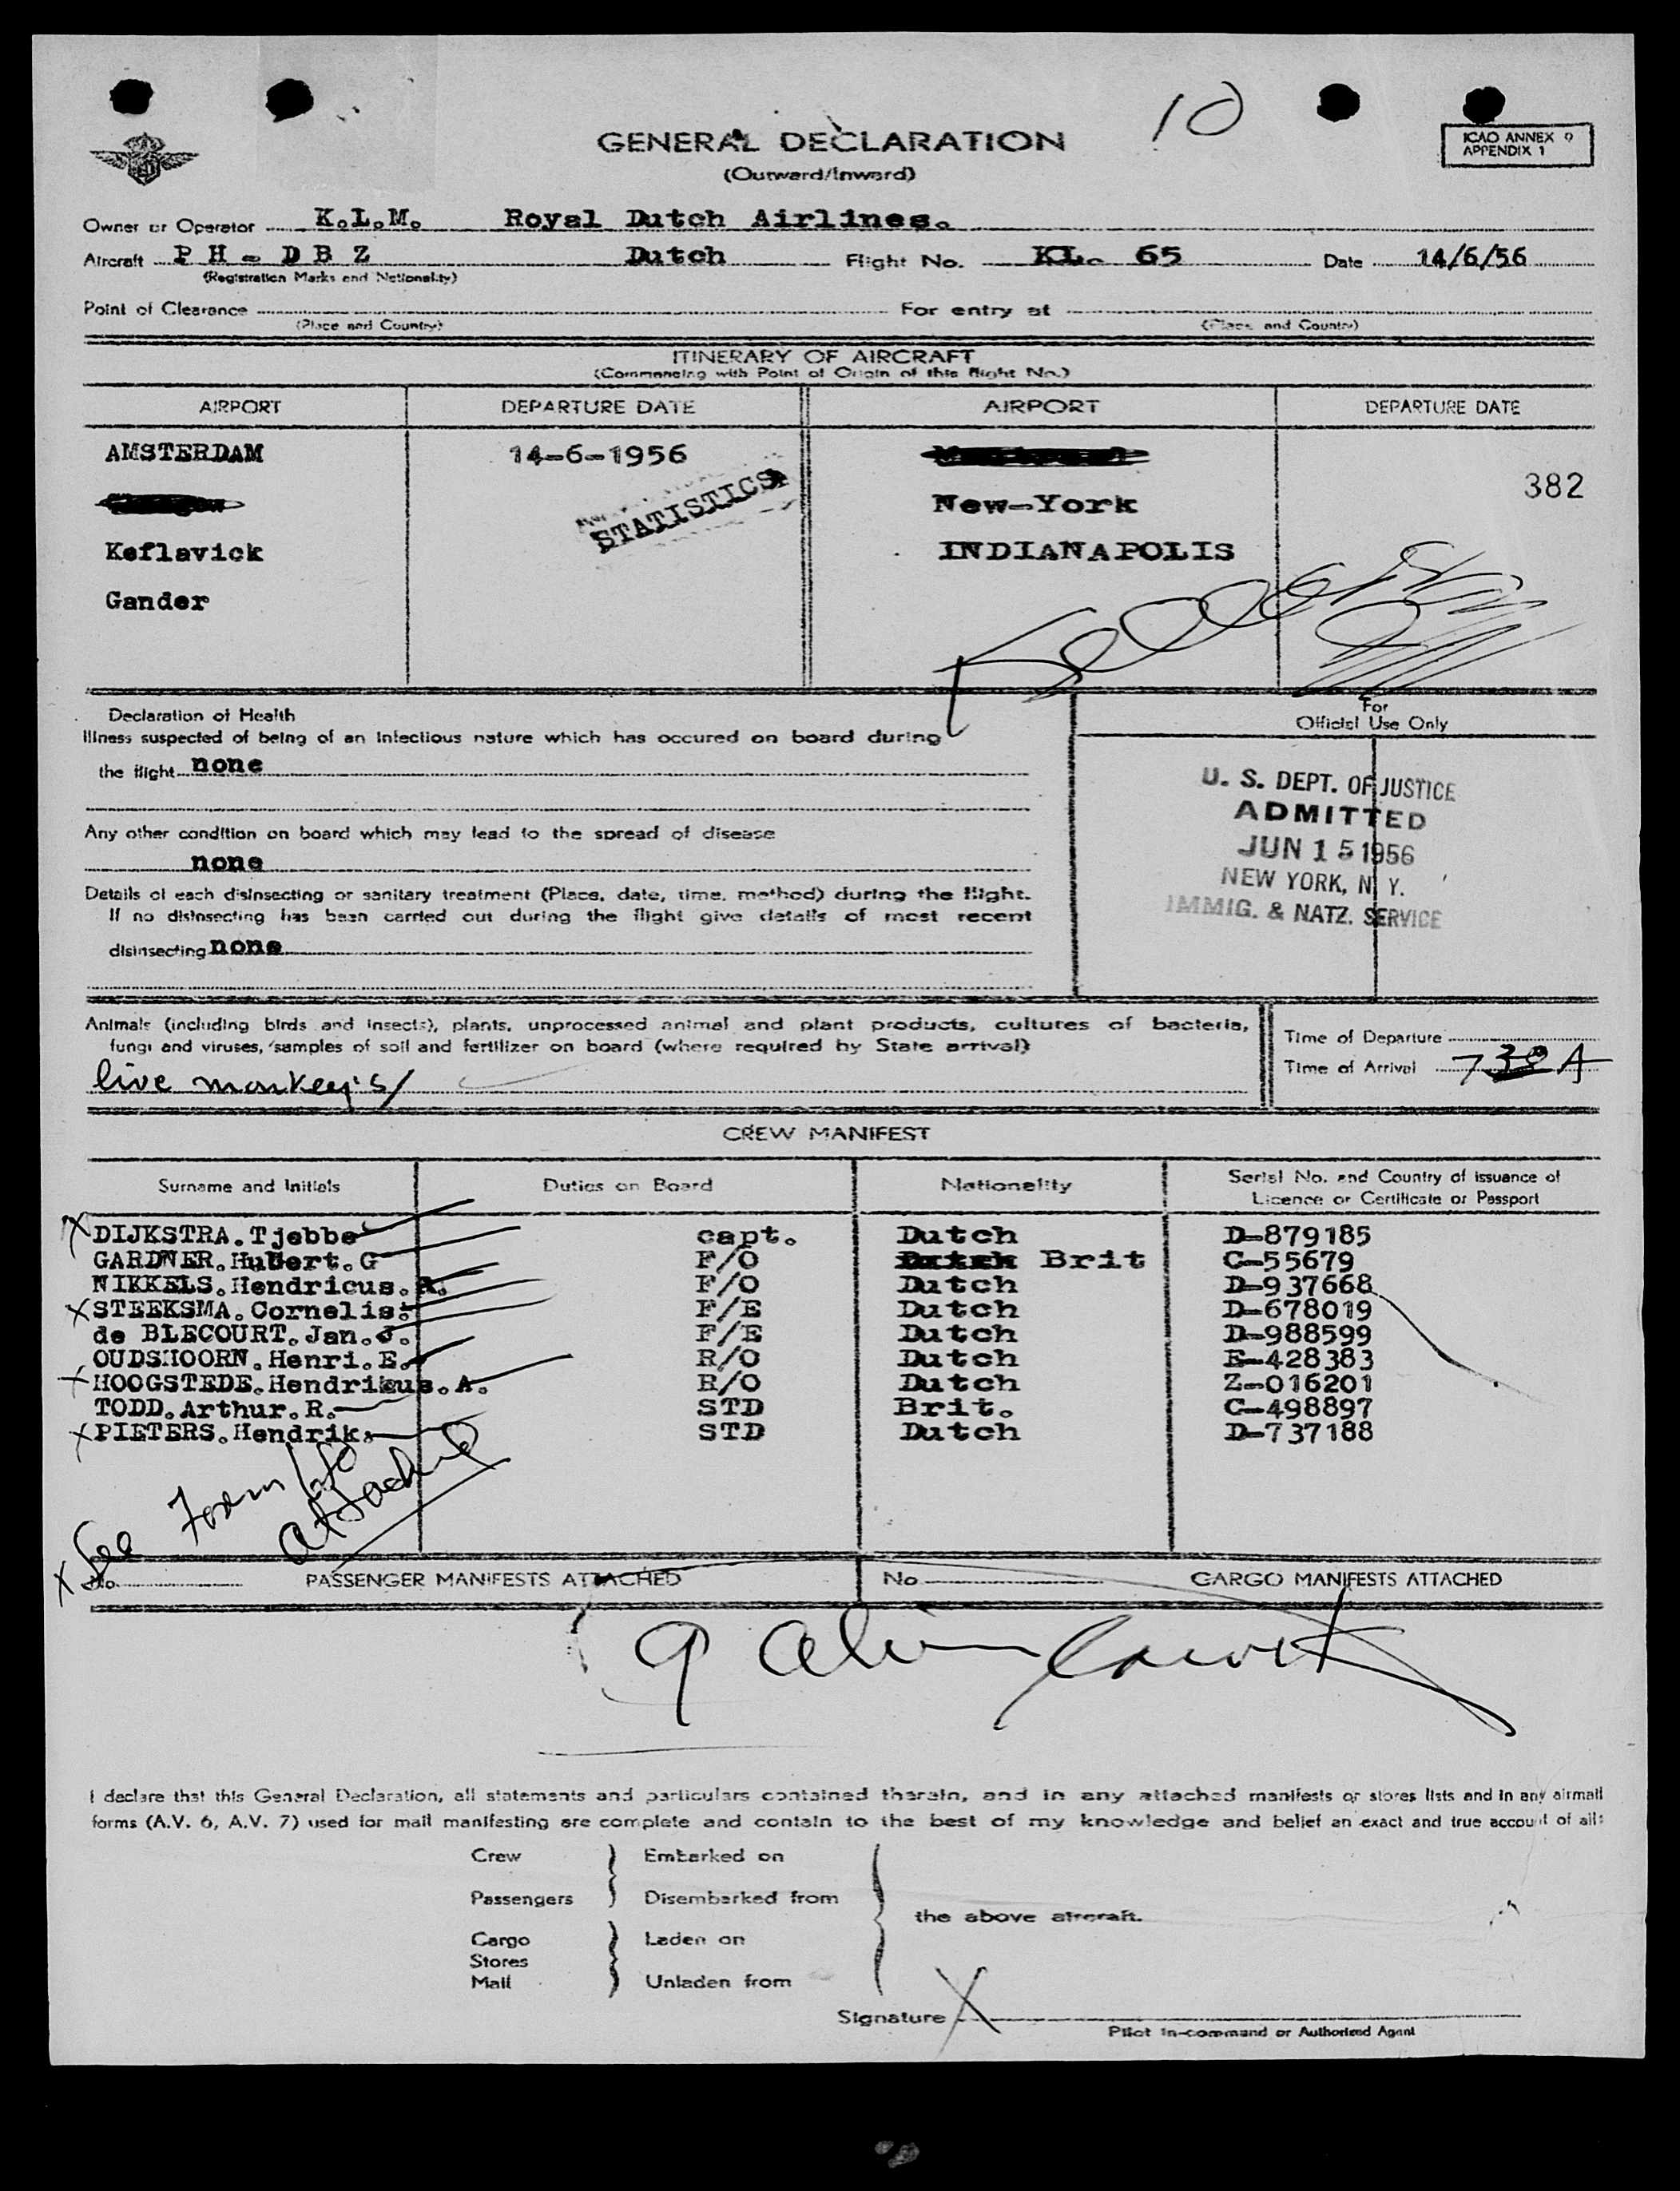 10
GENERAL DECLARATION
(Outward/Inward)
ICAO ANNEX 9
APPENDIX 1
Owner or Operator K.L.M. Royal Dutch Airlines.
Aircraft P H - D B Z Dutch Flight No. KL. 65 Date 14/6/56
(Registration Marks and Nationality)
Point of Clearance For entry at
(Place and Country) (Place and Country)
ITINERARY OF AIRCRAFT
(Commencing with Point of Origin of this flight No.)
AIRPORT DEPARTURE DATE AIRPORT DEPARTURE DATE
AMSTERDAM 14-6-1956
382
STATISTICS New-York
Keflavick INDIANAPOLIS
Gander
Declaration of Health
Illness suspected of being of an infectious nature which has occured on board during
the flight none
Any other condition on board which may lead to the spread of disease
none
Details of each disinsecting or sanitary treatment (Place, date, time, method) during the flight.
If no disinsecting has been carried out during the flight give details of most recent
disinsecting none
For
Official Use Only
U. S. DEPT. OF JUSTICE
ADMITTED
JUN 15 1956
NEW YORK, N. Y.
IMMIG. & NATZ. SERVICE
Animals (including birds and insects), plants, unprocessed animal and plant products, cultures of bacteria,
fungi and viruses, samples of soil and fertilizer on board (where required by State arrival)
live monkey's/
Time of Departure
Time of Arrival 730 A
CREW MANIFEST
Surname and Initials Duties on Board Nationality Serial No. and Country of issuance of
Licence or Certificate or Passport
X DIJKSTRA.Tjebbe capt. Dutch D-879185
GARDNER.Hubert.G F/O Dutch Brit C-55679
NIKKELS.Hendricus.A. F/O Dutch D-937668
X STEEKSMA.Cornelis. F/E Dutch D-678019
de BLECOURT.Jan.J. F/E Dutch D-988599
OUDSHOORN.Henri.E. R/O Dutch E-428383
X HOOGSTEDE.Hendrikus.A. R/O Dutch Z-016201
TODD.Arthur.R. STD Brit. C-498897
X PIETERS.Hendrik. STD Dutch D-737188
X See Form
attached
No. PASSENGER MANIFESTS ATTACHED No CARGO MANIFESTS ATTACHED
9 alien
I declare that this General Declaration, all statements and particulars contained therein, and in any attached manifests or stores lists and in any airmail
forms (A.V. 6, A.V. 7) used for mail manifesting are complete and contain to the best of my knowledge and belief an exact and true account of all:
Crew Embarked on
Passengers Disembarked from
the above aircraft.
Cargo Laden on
Stores
Mail Unladen from
Signature X
Pilot in-command or Authorized Agent